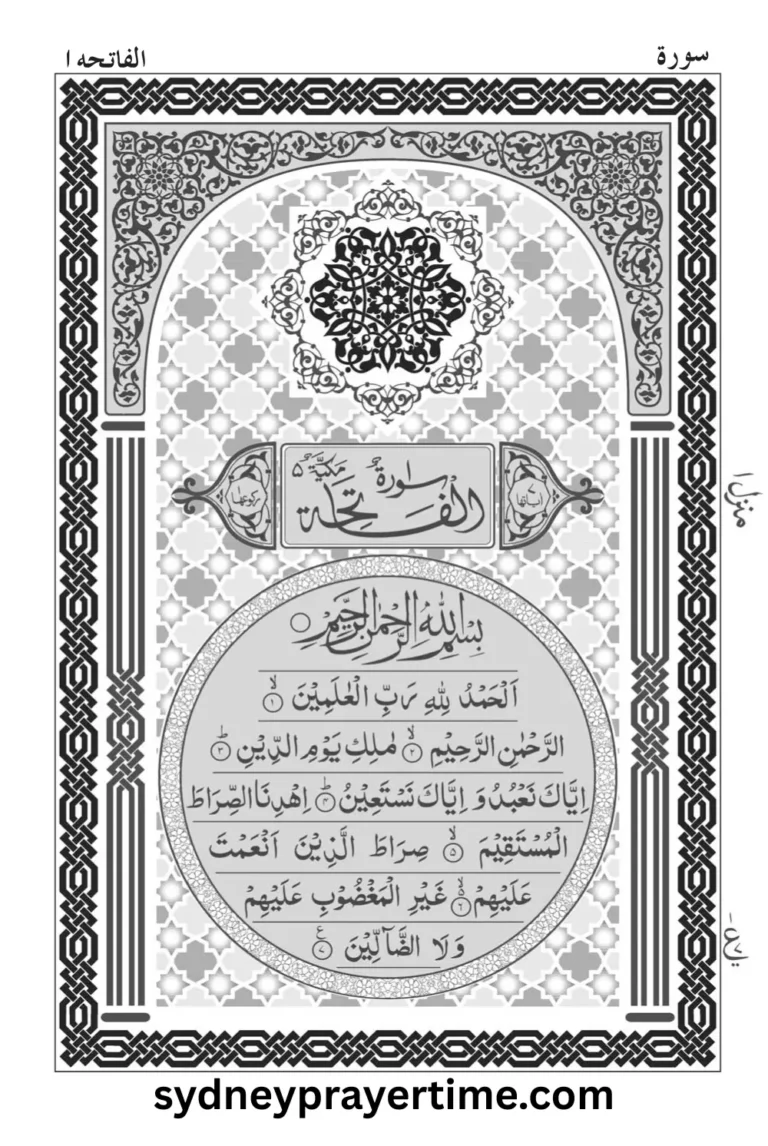 سورة
الفاتحه ١
سورة
مكية ۵
الفاتحة
اٰياتها
ركوعها
بِسْمِ اللّٰهِ الرَّحْمٰنِ الرَّحِيْمِ
اَلْحَمْدُ لِلّٰهِ رَبِّ الْعٰلَمِيْنَ ۙ۝۱
الرَّحْمٰنِ الرَّحِيْمِ ۙ۝۲ مٰلِكِ يَوْمِ الدِّيْنِ ؕ۝۳
اِيَّاكَ نَعْبُدُ وَ اِيَّاكَ نَسْتَعِيْنُ ؕ۝۴ اِهْدِنَا الصِّرَاطَ
الْمُسْتَقِيْمَ ۙ۝۵ صِرَاطَ الَّذِيْنَ اَنْعَمْتَ
عَلَيْهِمْ ۙ۝۶ غَيْرِ الْمَغْضُوْبِ عَلَيْهِمْ
وَ لَا الضَّآلِّيْنَ ۝۷
منزل ١
sydneyprayertime.com